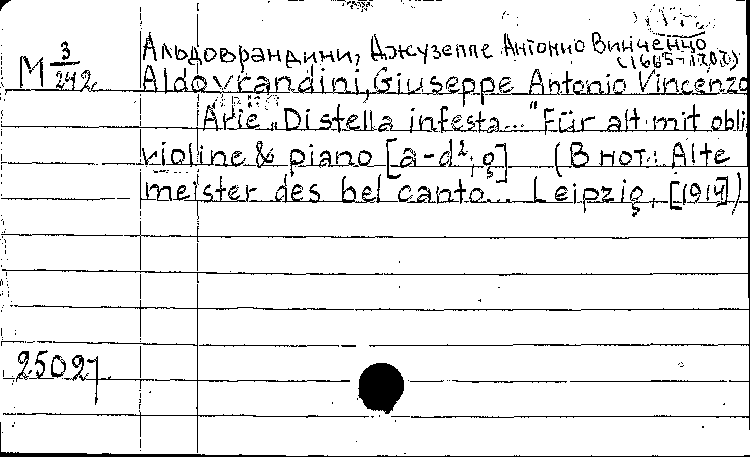 М 3/242.
Альдоврандини, Джузеппе Антонио Винченцо
(1665-1707)
Aldovrandini, Giuseppe Antonio Vincenzo
Arie „Di stella infesta..." Für alt mit obli
violine & piano [a-d², g] (В нот.: Alte
meister des bel canto... Leipzig, [1914])
25027